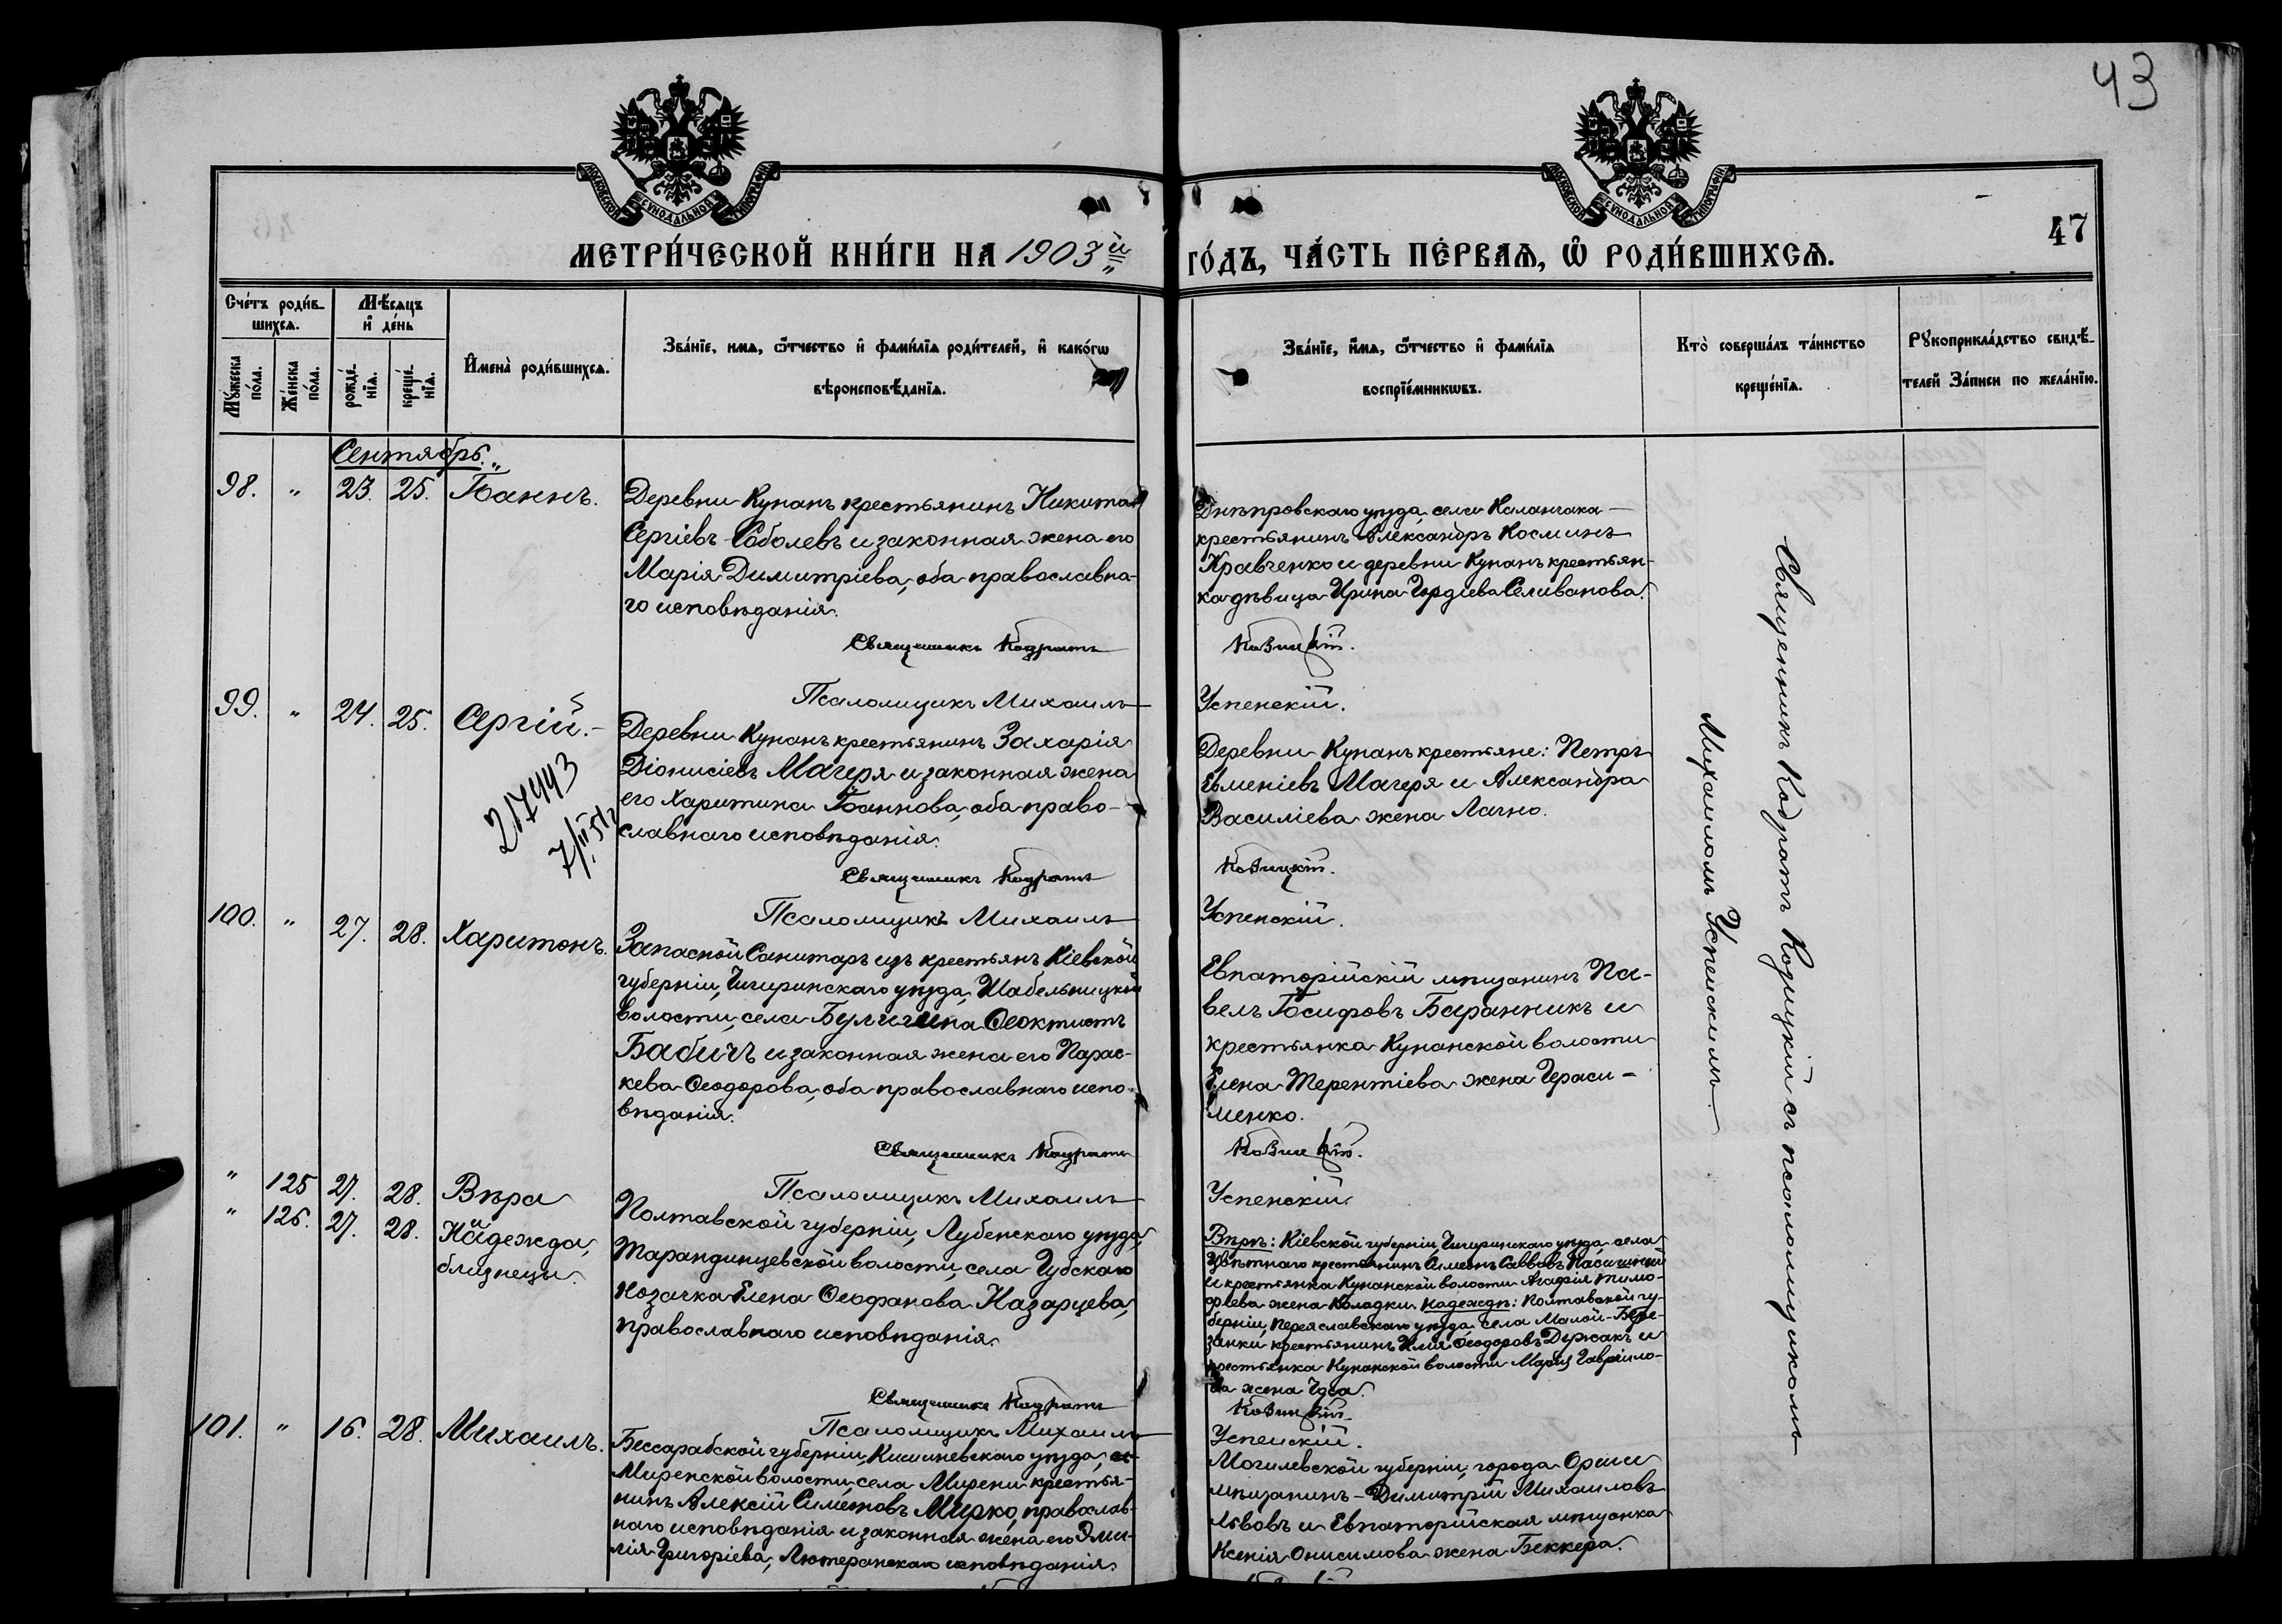 43
МОСКОВСКОЙ СѴНОДАЛЬНОЙ ТИПОГРАФІИ
МОСКОВСКОЙ СѴНОДАЛЬНОЙ ТИПОГРАФІИ
47
МЕТРИ́ЧЕСКОЙ КНИ́ГИ НА 1903й
ГО́ДЪ, ЧА́СТЬ ПЕ́РВАѦ, Ѽ РОДИ́ВШИХСѦ.
Сче́тъ роди́в-
шихсѧ.
Мꙋ́жеска по́ла.
Же́нска по́ла.
Мѣ́сѧцъ
и҆ де́нь
рожде́нїѧ.
креще́нїѧ.
И҆мена̀ роди́вшихсѧ.
Зва́нїе, имѧ, ѻ҆́тчество и҆ фами́лїѧ роди́телей, и҆ како́гѡ
вѣроисповѣ́данїѧ.
Зва́нїе, и҆́мѧ, ѻ҆́тчество и҆ фами́лїѧ
воспрїе́мникѡвъ.
Кто̀ соверша́лъ та́инство
креще́нїѧ.
Рꙋкоприкла́дство свидѣ́-
телей За́писи по жела́нїю.
Сентябрь.
98. " 23. 25. Іоаннъ.
Деревни Кунанъ крестьянинъ Никита
Сергіевъ Соболевъ и законная жена его
Марія Димитріева, оба православна-
го исповѣданія.
Священникъ Кодратъ
Псаломщикъ Михаилъ
Днѣпровскаго уѣзда села Каланчака
крестьянинъ Александръ Косминъ
Кравченко и деревни Кунанъ крестьян-
ка дѣвица Ирина Гордіева Селиванова.
Козицкій.
Успенскій.
99. " 24. 25. Сергій.
217443
7/II 51
Деревни Кунанъ крестьянинъ Захарія
Діонисіевъ Магеря и законная жена
его Харитина Іоаннова, оба право-
славнаго исповѣданія.
Священникъ Кодратъ
Псаломщикъ Михаилъ
Деревни Кунанъ крестьяне: Петръ
Евменіевъ Магеря и Александра
Василіева жена Лагно.
Козицкій.
Успенскій.
100. " 27. 28. Харитонъ.
Запасной Санитаръ изъ крестьянъ Кіевской
губерніи, Чигиринскаго уѣзда, Шабельницкой
волости, села Бужина Ѳеоктистъ
Бабичъ и законная жена его Парас-
кева Ѳеодорова, оба православнаго испо-
вѣданія.
Священникъ Кодратъ
Псаломщикъ Михаилъ
Евпаторійскій мѣщанинъ Па-
велъ Іосифовъ Баранникъ и
крестьянка Кунанской волости
Елена Терентіева жена Гераси-
менко.
Козицкій.
Успенскій.
" 125 27. 28. Вѣра
" 126. 27. 28. Надежда,
близнецы.
Полтавской губерніи, Лубенскаго уѣзда,
Тарандинцевской волости, села Губскаго
козачка Елена Ѳеофанова Назарцева,
православнаго исповѣданія.
Священникъ Кодратъ
Псаломщикъ Михаилъ
Вѣрѣ: Кіевской губерніи, Чигиринскаго уѣзда села
Цвѣтнаго крестьянинъ Симеонъ Саввовъ
и крестьянка Кунанской волости Агафія Тимо-
фіева жена Коладки. Надеждѣ: Полтавской гу-
берніи, Переяславскаго уѣзда села Малой-Бере-
занки крестьянинъ Илія Ѳеодоровъ Держакъ и
крестьянка Кунанской волости Марія Гавріило-
ва жена
Козицкій.
Успенскій.
101. " 16. 28. Михаилъ.
Бессарабской губерніи, Кишиневскаго уѣзда,
Миренской волости, села Мирени крестья-
нинъ Алексій Симеоновъ Мирко, православ-
наго исповѣданія и законная жена его Эми-
лія Григоріева, Лютеранскаго исповѣданія.
Могилевской губерніи, города Орши
мѣщанинъ Димитрій Михаиловъ
Львовъ и Евпаторійская мѣщанка
Ксенія Онисимова жена Беккера.
Священникъ Кодратъ Козицкій съ псаломщикомъ
Михаиломъ Успенскимъ.